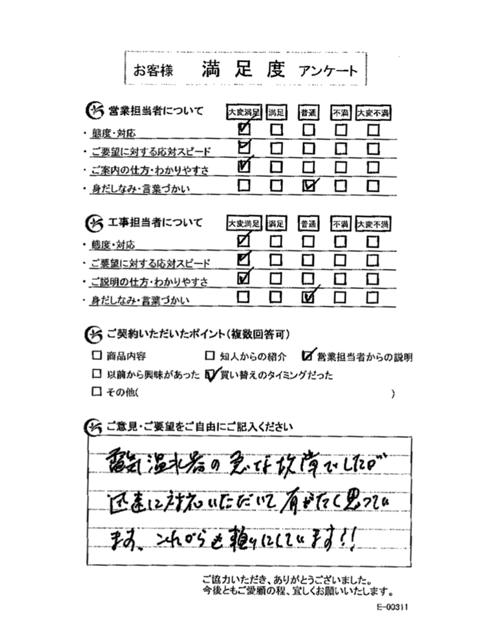 お客様 満足度 アンケート
営業担当者について 大変満足 満足 普通 不満 大変不満
・態度・対応
・ご要望に対する応対スピード
・ご案内の仕方・わかりやすさ
・身だしなみ・言葉づかい
工事担当者について 大変満足 満足 普通 不満 大変不満
・態度・対応
・ご要望に対する応対スピード
・ご説明の仕方・わかりやすさ
・身だしなみ・言葉づかい
ご契約いただいたポイント(複数回答可)
商品内容 知人からの紹介 営業担当者からの説明
以前から興味があった 買い替えのタイミングだった
その他( )
ご意見・ご要望をご自由にご記入ください
電気温水器の急な故障でしたが
迅速に対応いただいて有がたく思ってい
ます、これからも頼りにしています!!
ご協力いただき、ありがとうございました。
今後ともご愛顧の程、宜しくお願いいたします。
E-00311